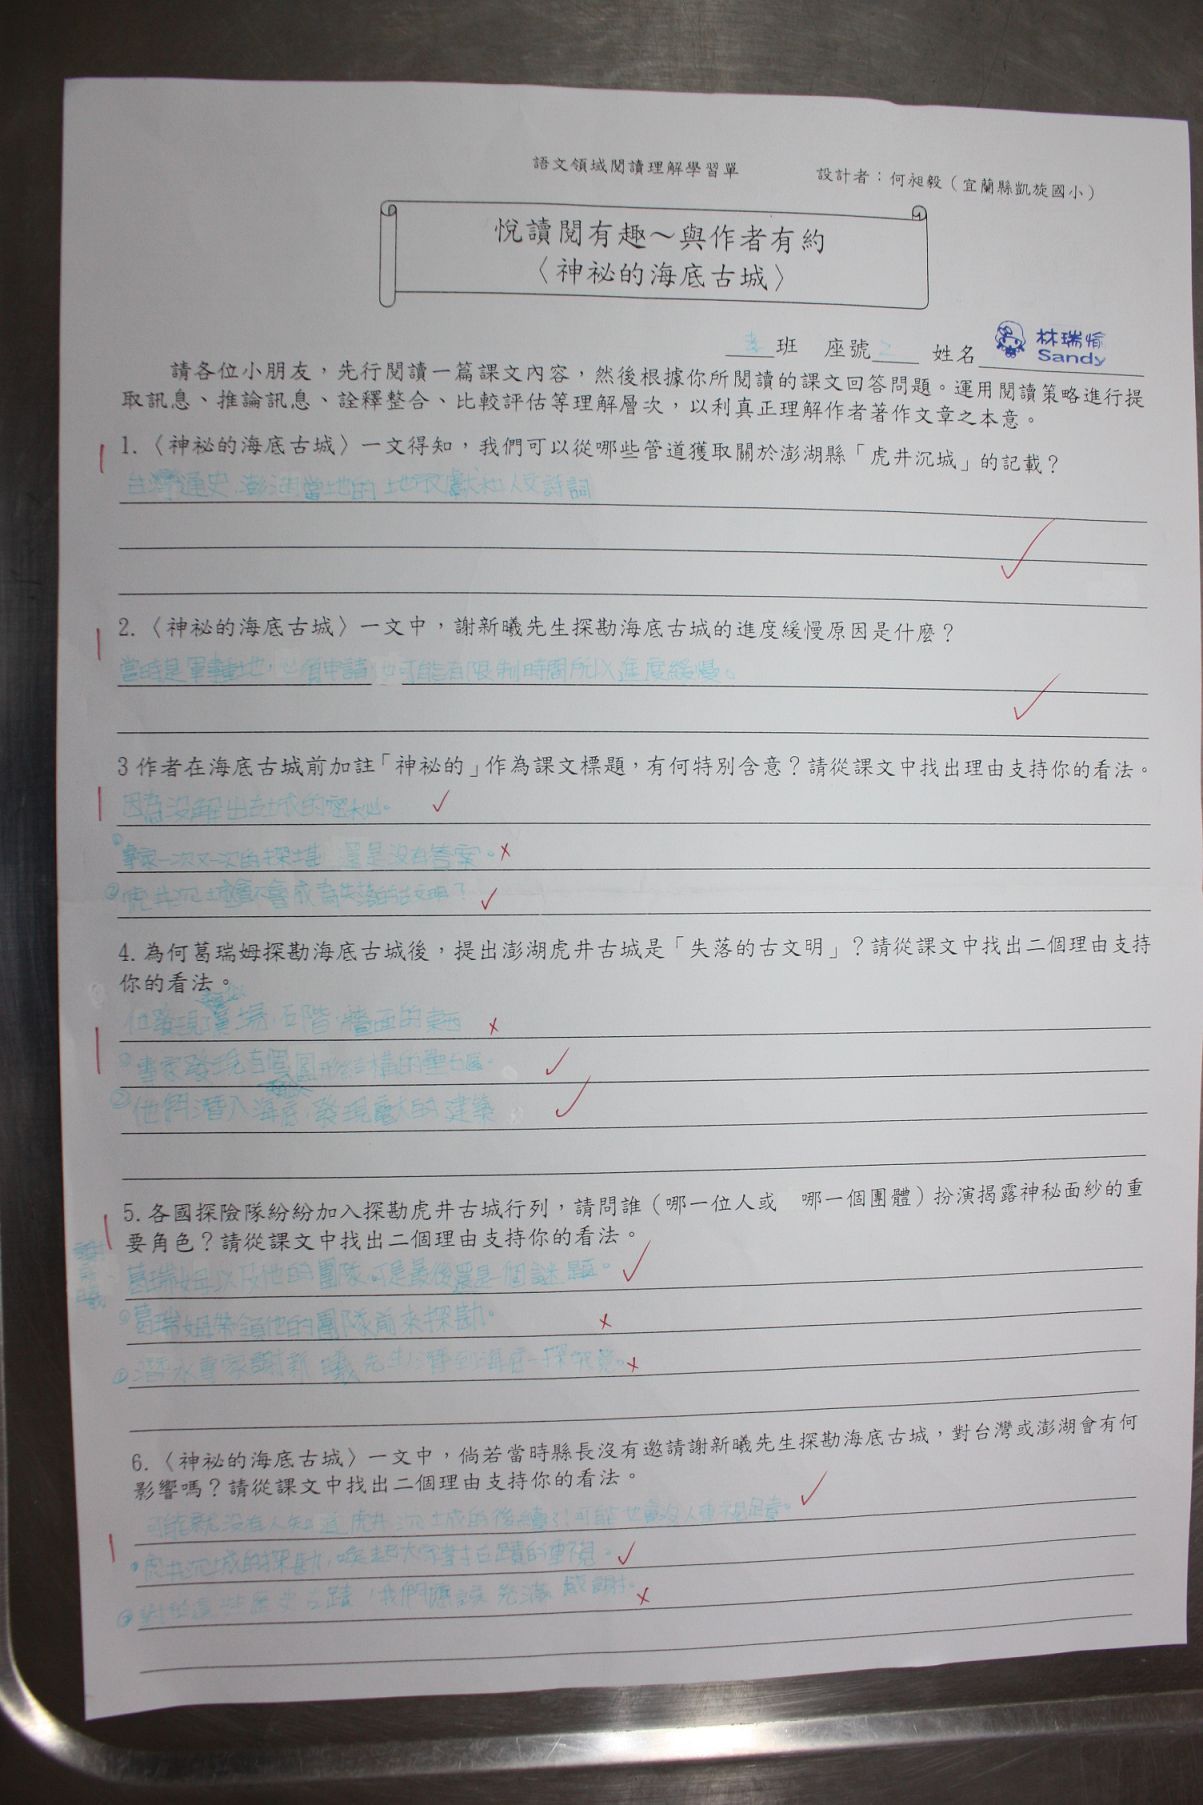 語文領域閱讀理解學習單 設計者：何昶毅（宜蘭縣凱旋國小）
悅讀閱有趣～與作者有約
〈神祕的海底古城〉
班 座號 2 姓名 林瑞愉
Sandy
請各位小朋友，先行閱讀一篇課文內容，然後根據你所閱讀的課文回答問題。運用閱讀策略進行提
取訊息、推論訊息、詮釋整合、比較評估等理解層次，以利真正理解作者著作文章之本意。
1.〈神祕的海底古城〉一文得知，我們可以從哪些管道獲取關於澎湖縣「虎井沉城」的記載？
台灣通史、澎湖當地的地方獻和人文詩詞
2.〈神祕的海底古城〉一文中，謝新曦先生探勘海底古城的進度緩慢原因是什麼？
當時是軍事重地，必須申請，也可能有限制時間所以進度緩慢。
3 作者在海底古城前加註「神祕的」作為課文標題，有何特別含意？請從課文中找出理由支持你的看法。
因為沒解出古城的密秘。
①專家一次又一次的探堪 還是沒有答案。
②虎井沉城會不會成為失落的古文明？
4. 為何葛瑞姆探勘海底古城後，提出澎湖虎井古城是「失落的古文明」？請從課文中找出二個理由支持
你的看法。
他發現了廣場，石階，牆面的東西
①專家發現有個圓形結構的壘石區。
②他們潛入海底，發現龐大的建築
5. 各國探險隊紛紛加入探勘虎井古城行列，請問誰（哪一位人或 哪一個團體）扮演揭露神秘面紗的重
要角色？請從課文中找出二個理由支持你的看法。
葛瑞姆以及他的團隊，可是最後還是一個謎題。
①葛瑞姆帶領他的團隊前來探勘。
②潛水專家謝新曦先生潛到海底一探究竟。
6.〈神祕的海底古城〉一文中，倘若當時縣長沒有邀請謝新曦先生探勘海底古城，對台灣或澎湖會有何
影響嗎？請從課文中找出二個理由支持你的看法。
可能就沒有人知道虎井沉城的後續，可能也會沒人重視這。
①虎井沉城的探勘，喚起大家對古蹟的重視。
②對於這些歷史古蹟，我們應該充滿感謝。